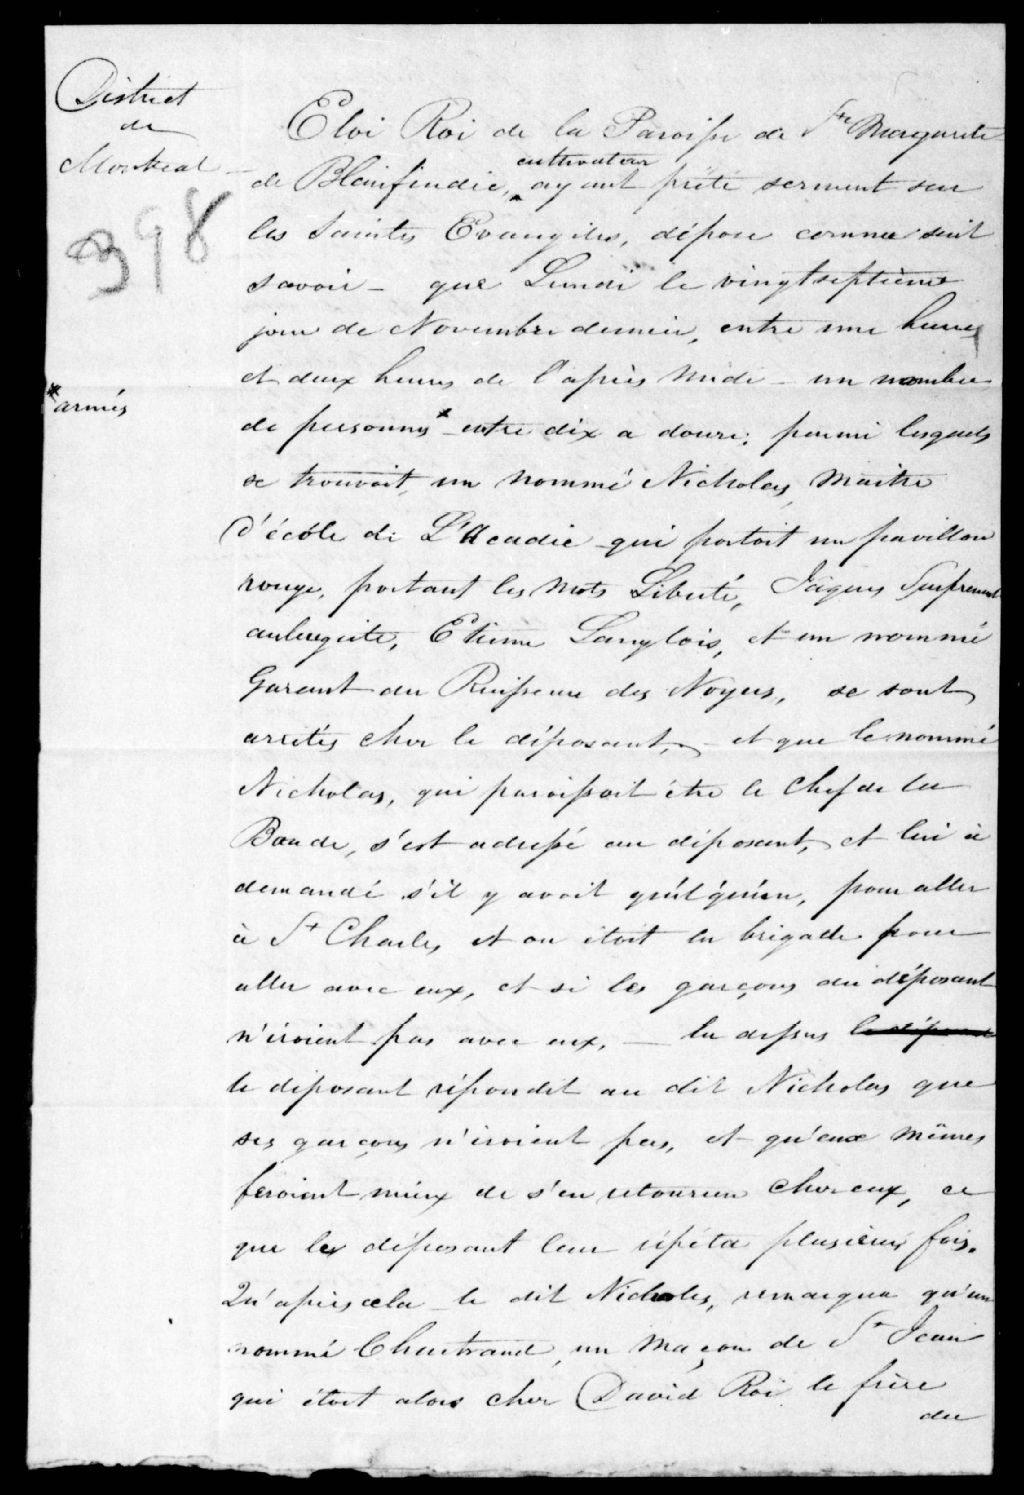 District
de
Montreal
398
Eloi Roi de la Paroisse de Ste Marguerite
cultivateur
de Blairfindie, ayant prêté serment sur
les Saintes Evangiles, dépose comme suit
savoir - que Lundi le vingt septième
jour de Novembre dernier, entre une heure
et deux heures de l'après midi - un nombre
* armés
de personnes * entre dix a douze; parmi lesquels
se trouvoit, un nommé Nicholas, Maitre
d'école de L'Acadie qui portoit un pavillon
rouge, portant les mots Liberté, Jâques Surprenant
aubergiste, Etienne Langlois, et un nommé
Garant du Ruisseau des Noyers, se sont
arretés chez le déposant, - et que le nommé
Nicholas, qui paroissoit être le Chef de la
Bande, s'est adressé au déposant, et lui à
demandé s'il y avoit quélqu'un, pour aller
à St Charles, et ou étoit la brigade pour
aller avec eux, et si les garçons du déposant
n'iroient pas avec eux, - la dessus le déposant
le déposant répondit au dit Nicholas que
ses garçons n'iroient pas, et qu'eux mêmes
feroient mieux de s'en retourner chez eux, ce
que le déposant leur répéta plusieurs fois.
Qu'après cela le dit Nicholas, remarqua qu'un
nommé Chartrand, un maçon de St Jean
qui étoit alors chez David Roi le frère
du